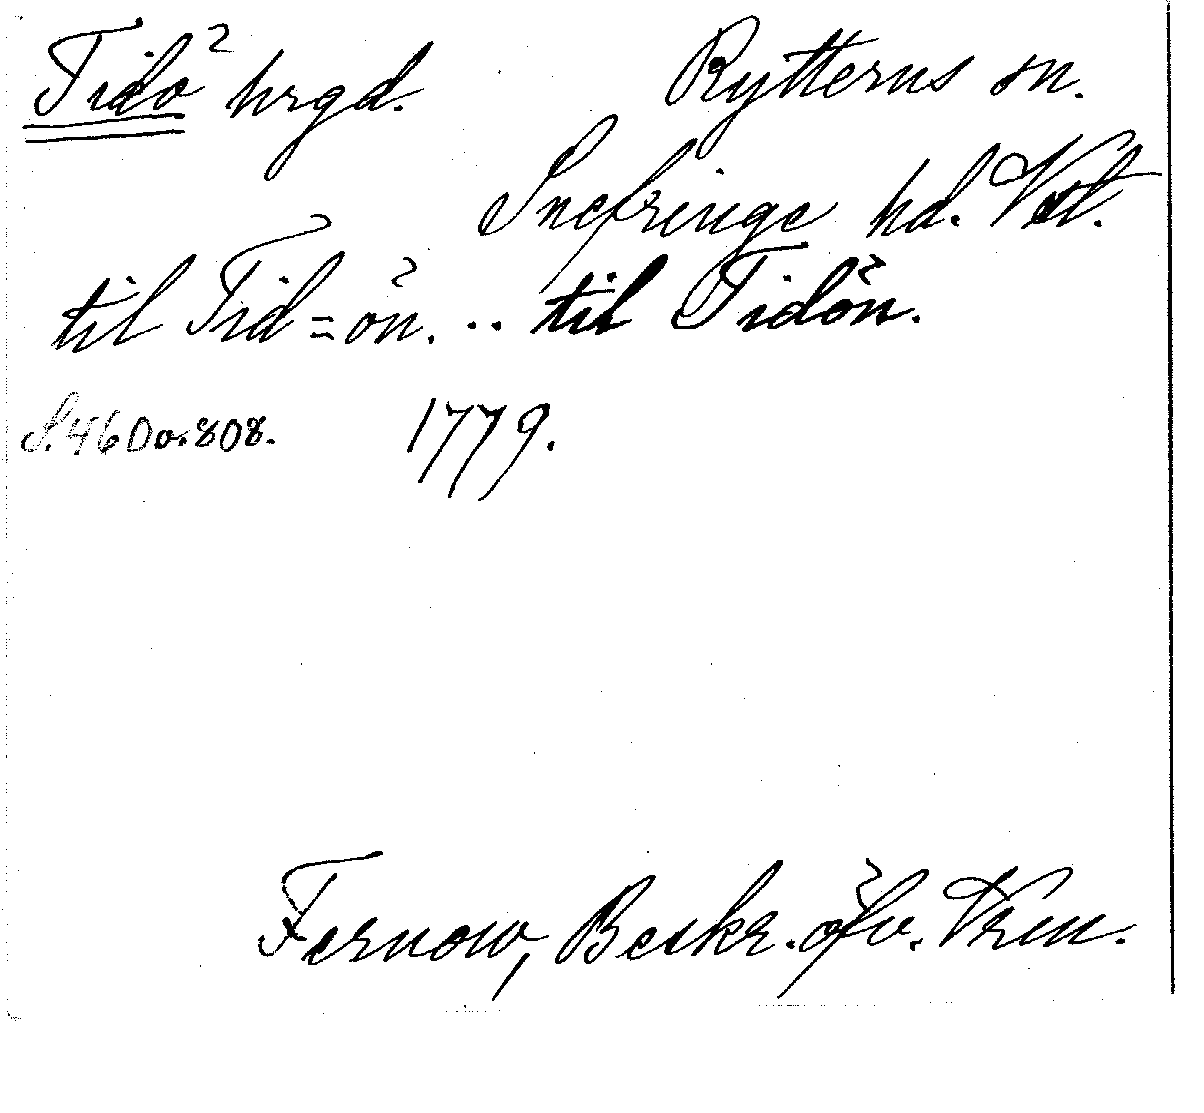 Tidö hrgd. Rytterns sn.
Snefringe hd. Vstl.
til Tid=ön. .. til Tidön.
S. 460 o. 808. 1779.
Fernow, Beskr. öfv. Vrm.